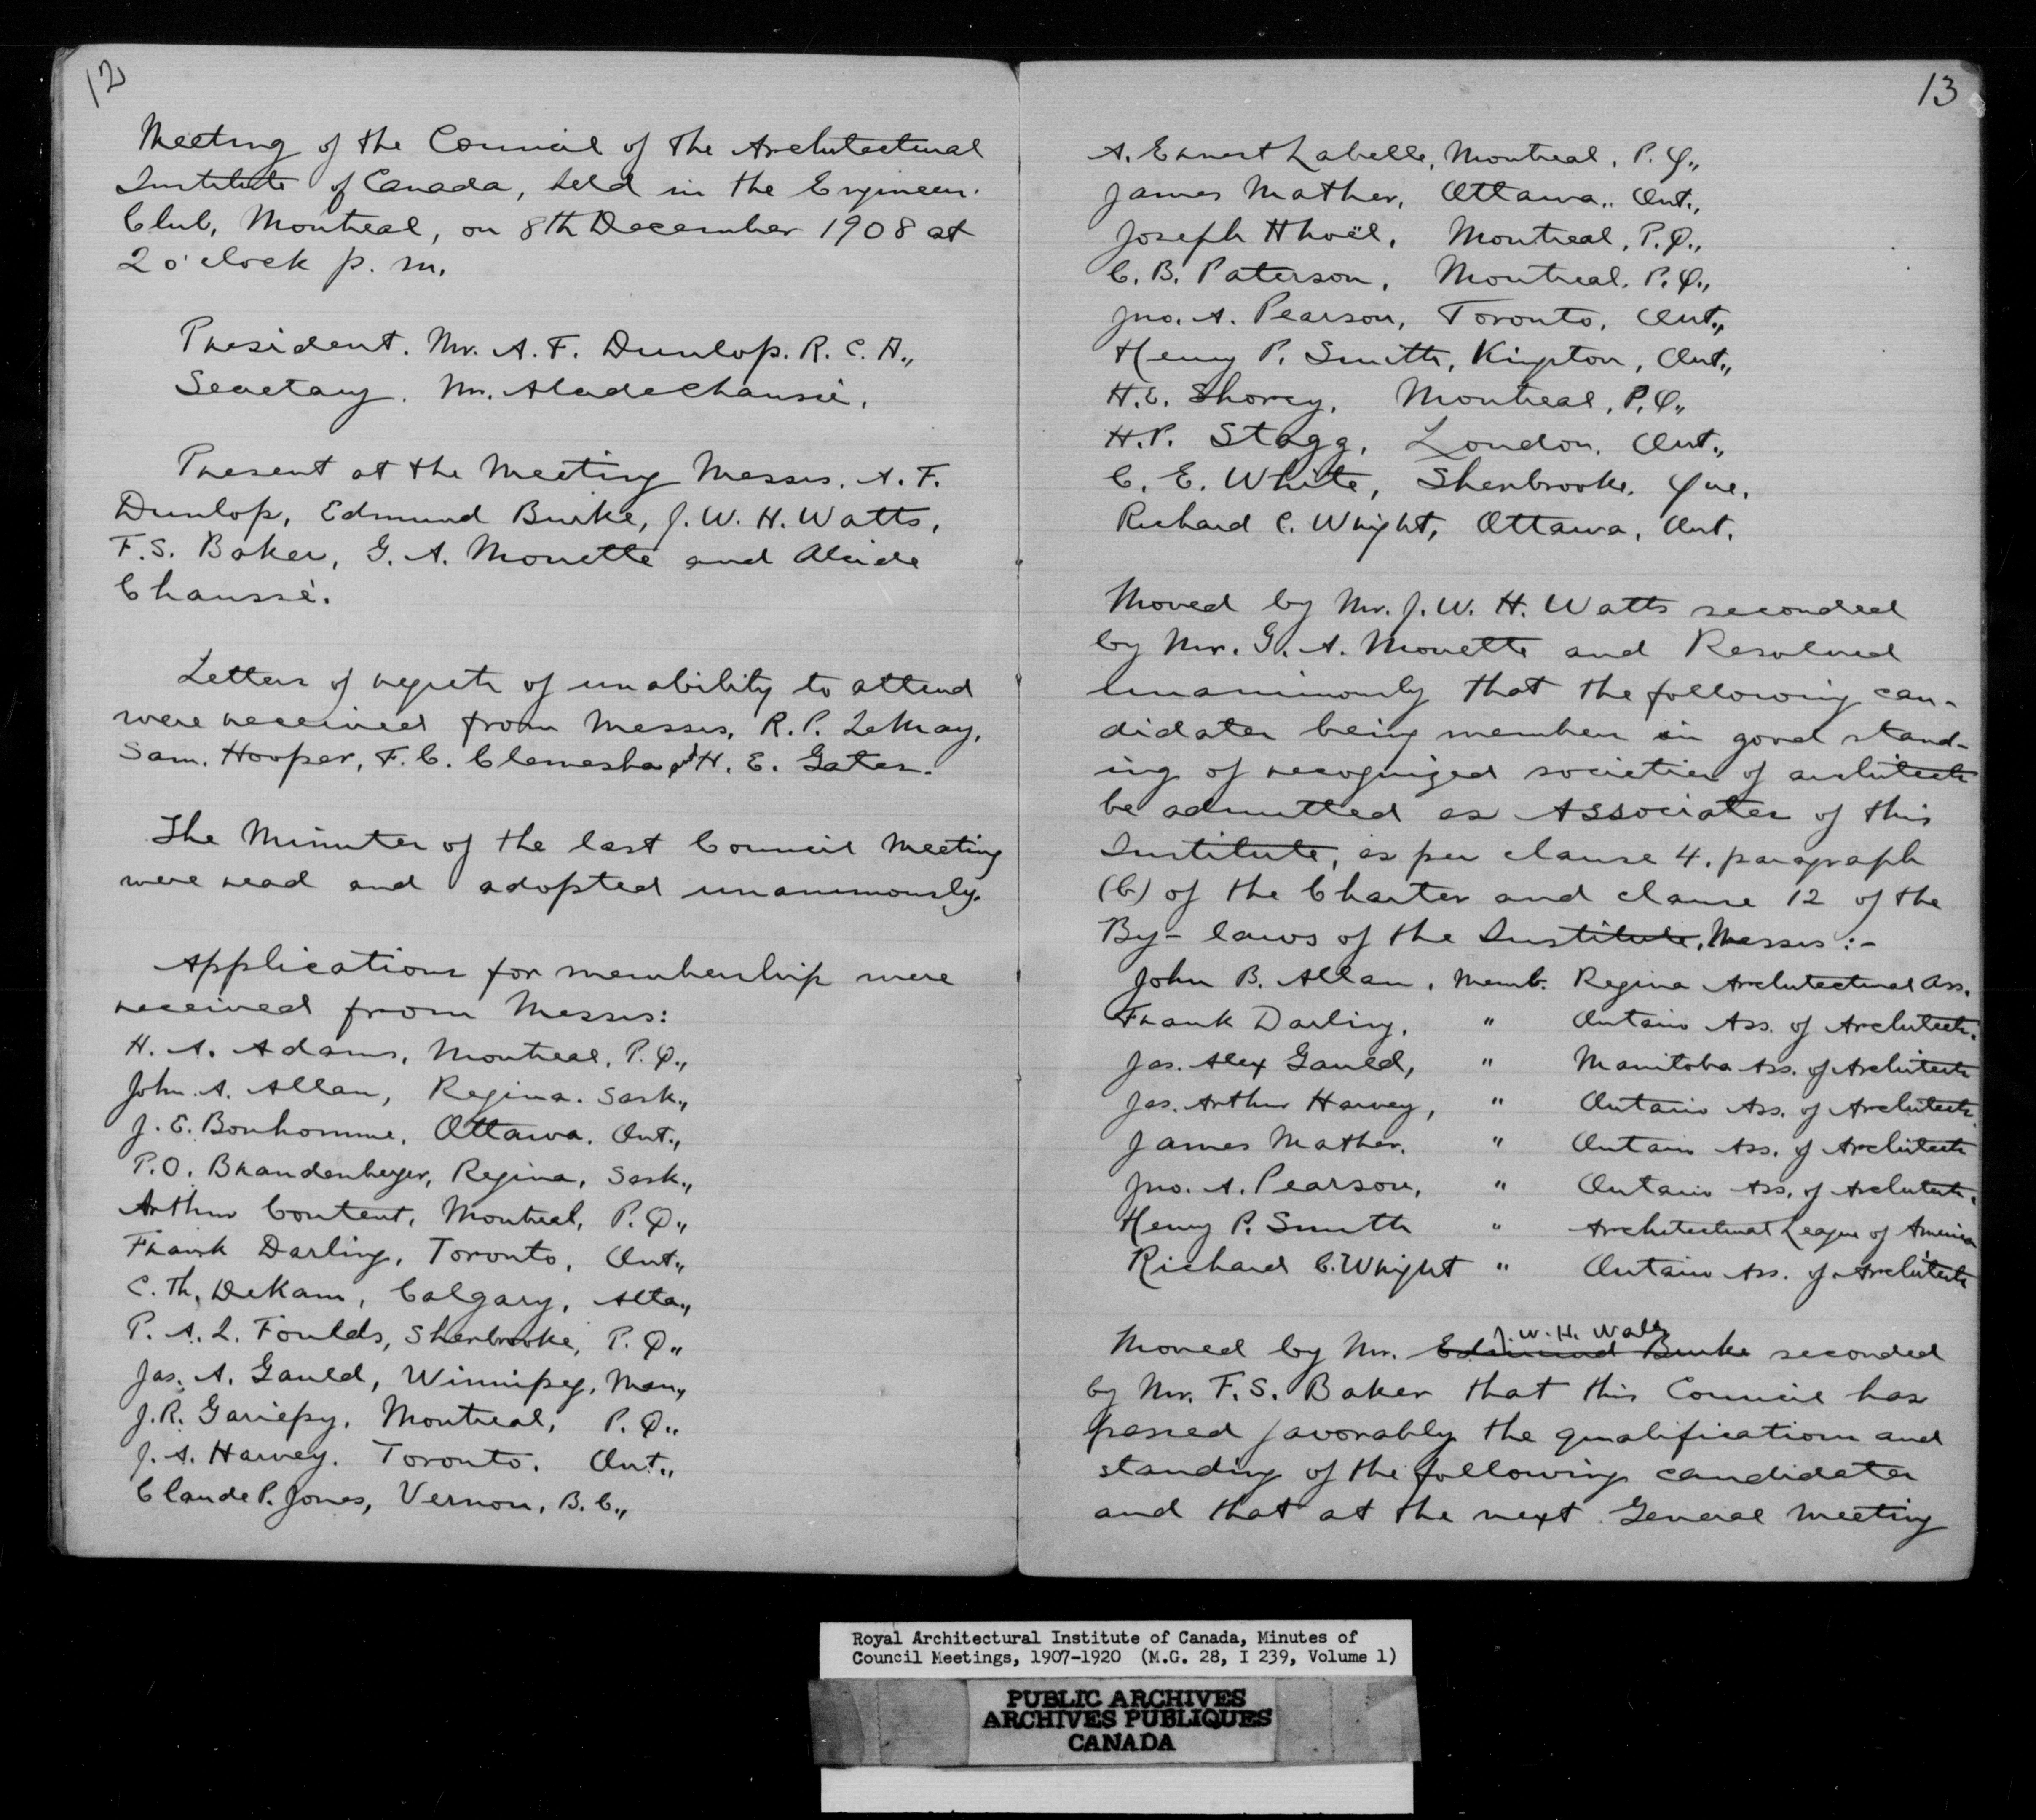 12
Meeting of the Council of the Architectural
Institute of Canada, held in the Engineers'
Club, Montreal, on 8th December 1908 at
2 o'clock p. m.
President. Mr. A. F. Dunlop. R. C. A.,
Secretary. Mr. Alcide Chaussé.
Present at the Meeting Messrs. A. F.
Dunlop, Edmund Burke, J. W. H. Watts,
F. S. Baker, G. A. Monette and Alcide
Chaussé.
Letters of regrets of unability to attend
were received from Messrs. R. P. LeMay,
Sam. Hooper, F. C. Clemesha & H. E. Gates.
The Minutes of the last Council Meeting
were read and adopted unanimously.
Applications for membership were
received from Messrs:
H. A. Adams, Montreal, P. Q.,
John. A. Allan, Regina. Sask.,
J. E. Bonhomme, Ottawa. Ont.,
P. O. Brandenberger, Regina, Sask.,
Arthur Content, Montreal, P. Q.,
Frank Darling, Toronto, Ont.,
C. Th. DeKam, Calgary, Alta.,
P. A. L. Foulds, Sherbrooke, P. Q.,
Jas. A. Gauld, Winnipeg, Man.,
J. R. Gariepy, Montreal, P. Q.,
J. A. Harvey. Toronto. Ont.,
Claude P. Jones, Vernon, B. C.,
13
A. Ernest Labelle, Montreal, P. Q.,
James Mather, Ottawa., Ont.,
Joseph Hhoël, Montreal, P. Q.,
C. B. Paterson, Montreal. P. Q.,
Jno. A. Pearson, Toronto, Ont.,
Henry P. Smith, Kingston, Ont.,
H. E. Shorey, Montreal, P. Q.,
H. P. Stagg, London, Ont.,
C. E. White, Sherbrooke, Que.
Richard C. Wright, Ottawa, Ont.
Moved by Mr. J. W. H. Watts seconded
by Mr. G. A. Monette and Resolved
unanimously that the following can-
didates being members in good stand-
ing of recognized societies of architects
be admitted as Associates of this
Institute, as per clause 4. paragraph
(b) of the Charter and clause 12 of the
By-laws of the Institute, Messrs:-
John B. Allan, Memb. Regina Architectural Ass.
Frank Darling, " Ontario Ass. of Architects.
Jas. Alex Gauld, " Manitoba Ass. of Architects
Jas. Arthur Harvey, " Ontario Ass. of Architects
James Mather. " Ontario Ass. of Architects
Jno. A. Pearson, " Ontario Ass. of Architects.
Henry P. Smith " Architectural League of America
Richard C. Wright " Ontario Ass. of Architects
J. W. H. Watts
Moved by Mr. Edmund Burke seconded
by Mr. F. S. Baker that this Council has
passed favorably the qualifications and
standing of the following candidates
and that at the next General Meeting
Royal Architectural Institute of Canada, Minutes of
Council Meetings, 1907-1920 (M.G. 28, I 239, Volume 1)
PUBLIC ARCHIVES
ARCHIVES PUBLIQUES
CANADA